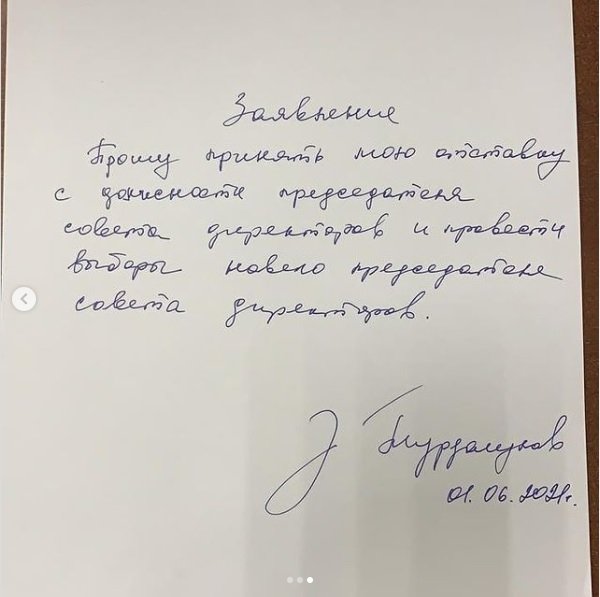 Заявление
Прошу принять мою отставку
с должности председателя
совета директоров и провести
выборы нового председателя
совета директоров.
01.06.2021г.